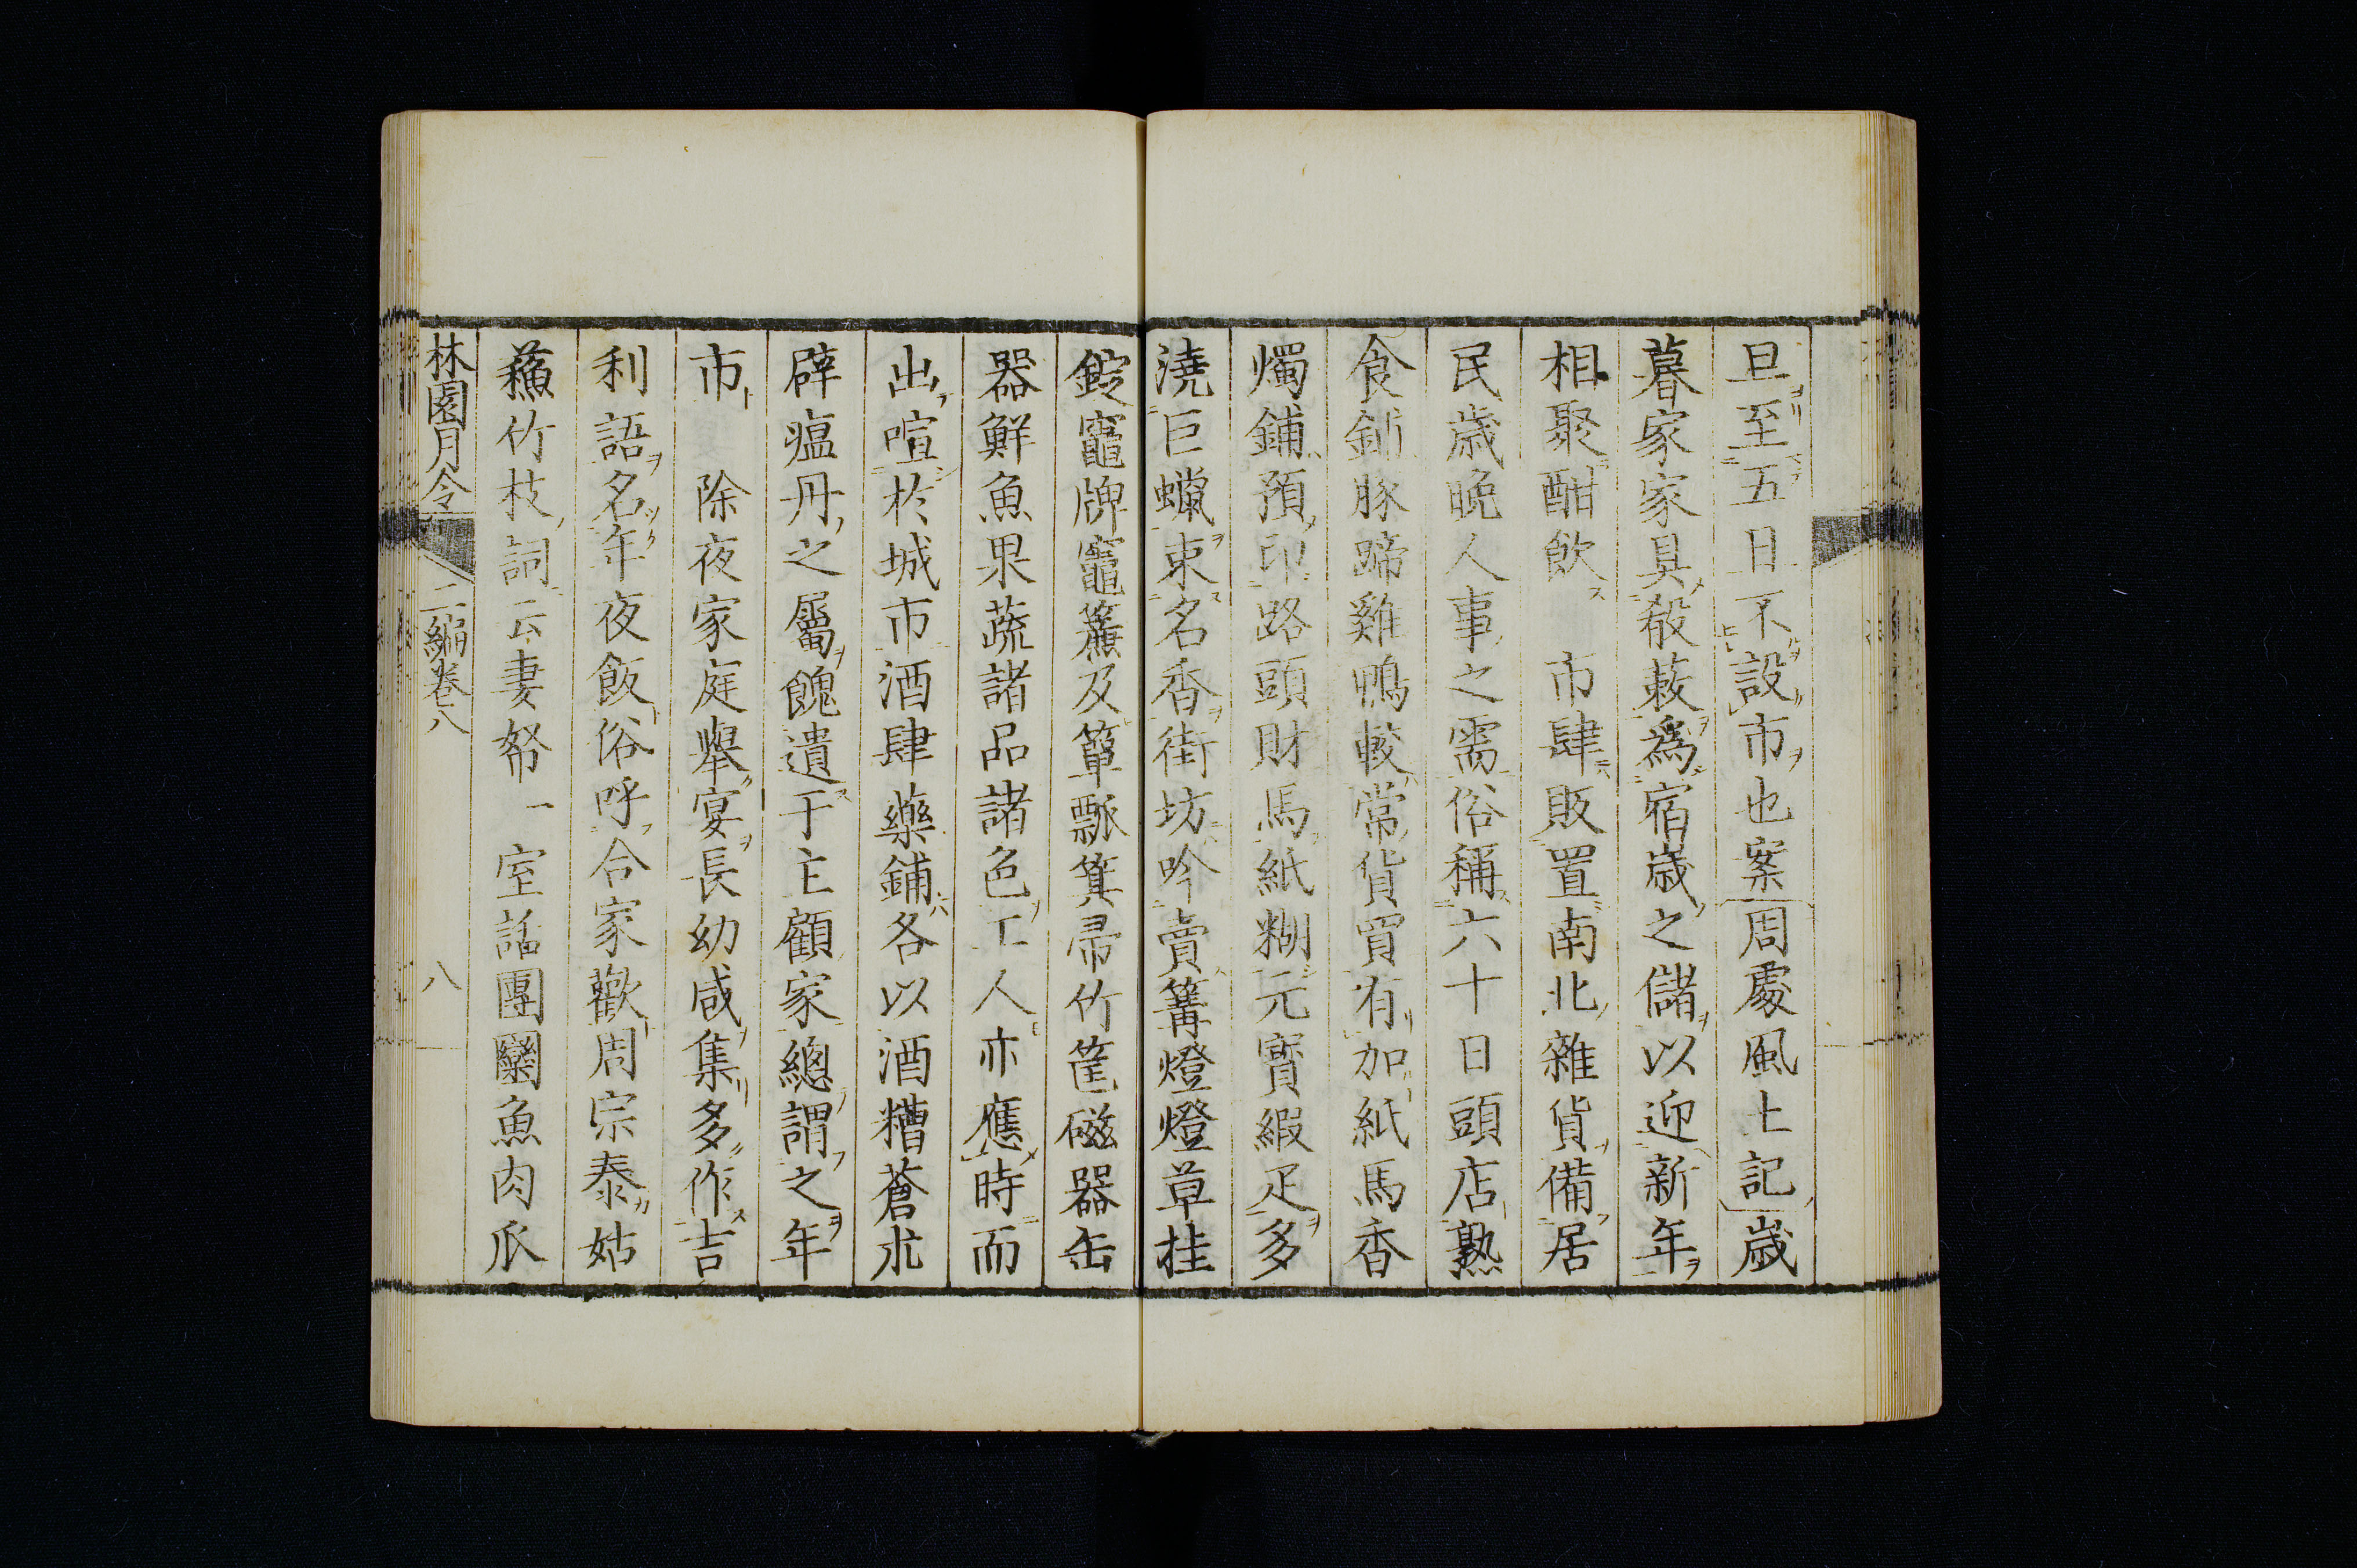 旦至五日不設市也案周處風土記歲
暮家家具殽蔌爲宿歲之儲以迎新年
相聚酣飲　市肆販置南北雜貨備居
民歲晚人事之需俗稱六十日頭店熟
食鋪豚蹄雞鴨較常貨買有加紙馬香
燭鋪預印路頭財馬紙糊元寶緞疋多
澆巨蠟束名香街坊吟賣篝燈燈草挂
錠竈牌竈簾及簞瓢箕帚竹筐磁器缶
器鮮魚果蔬諸品諸色工人亦應時而
出喧於城市酒肆藥鋪各以酒糟蒼朮
辟瘟丹之屬餽遺于主顧家總謂之年
市　除夜家庭舉宴長幼咸集多作吉
利語名年夜飯俗呼合家歡周宗泰姑
蘇竹枝詞云妻孥一室話團圞魚肉瓜
林園月令
二編卷八
八